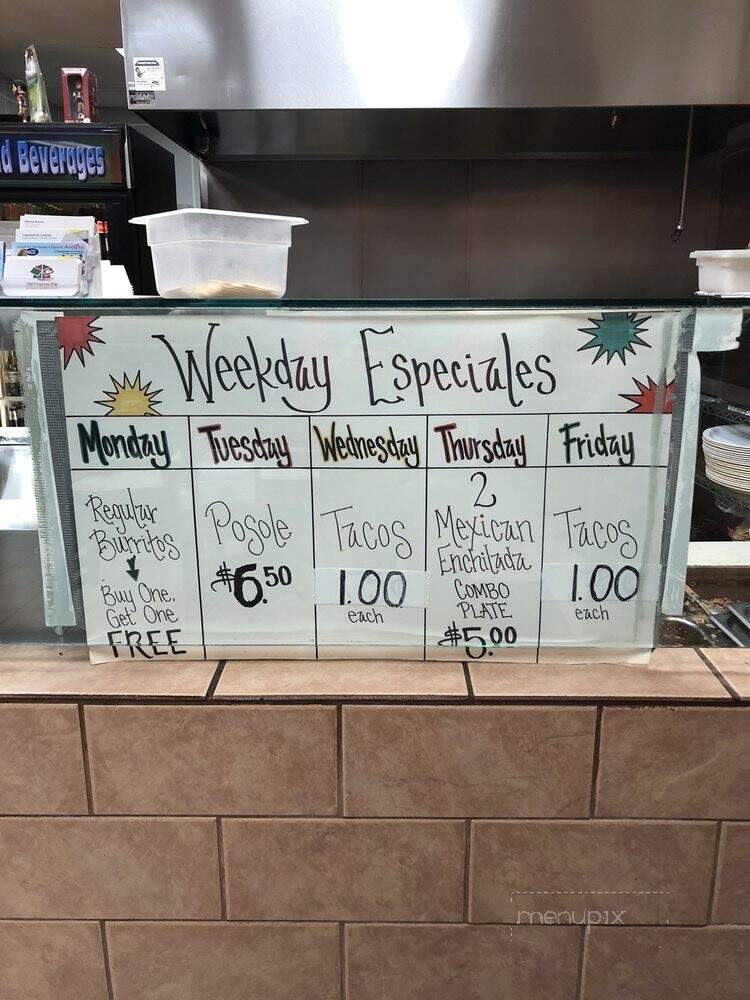 d Beverages
Weekday Especiales
Monday
Tuesday
Wednesday
Thursday
Friday
Regular
Burritos
Buy One,
Get One
FREE
Posole
$6.50
Tacos
1.00
each
2
Mexican
Enchilada
COMBO
PLATE
$5.00
Tacos
1.00
each
menupix